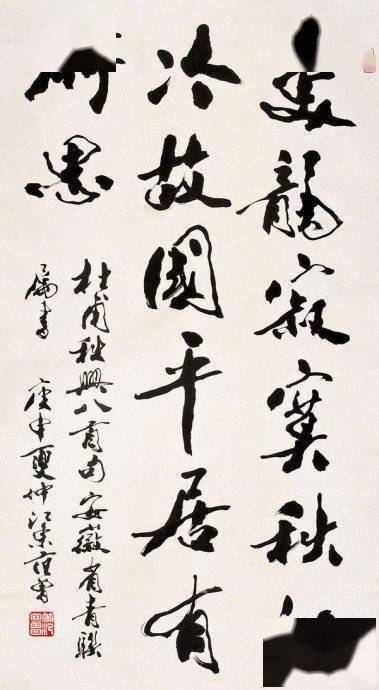 龍寂寞秋
冷故國平居有
思
杜甫秋興八首句安徽省青聯
屬書 庚申夏仲江東范曾